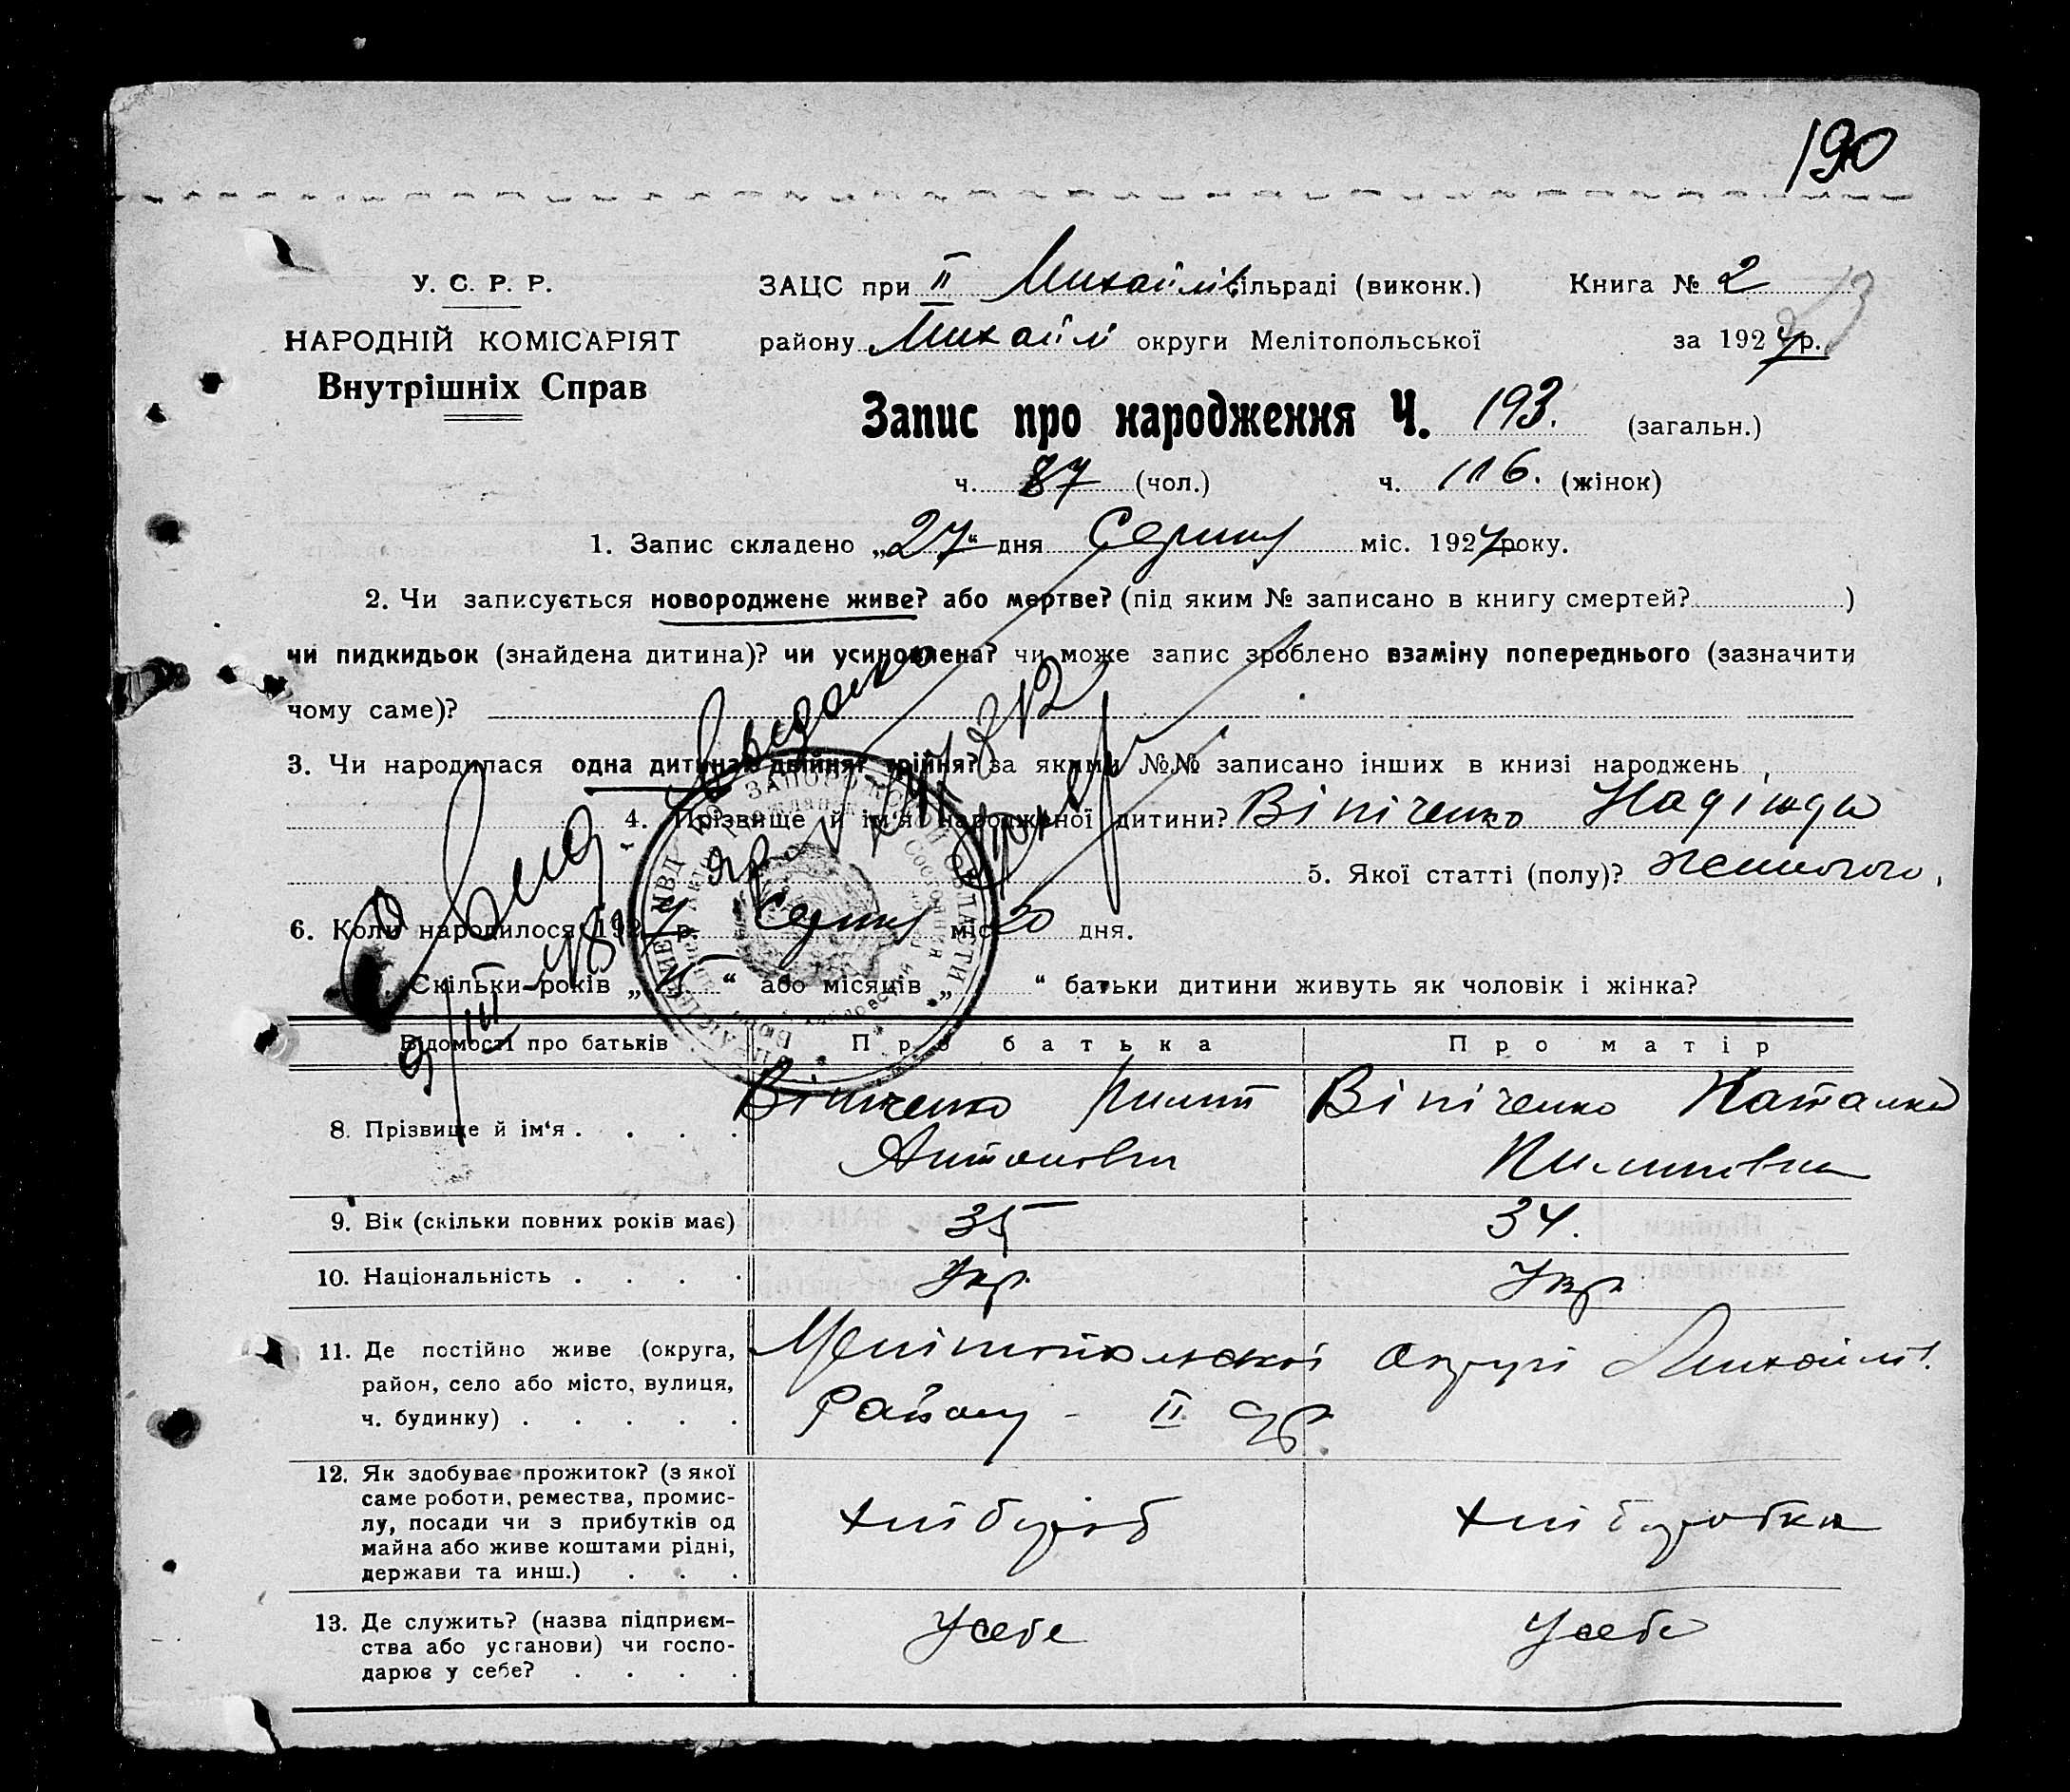 190
У. С. Р. Р.
НАРОДНІЙ КОМІСАРІЯТ
Внутрішніх Справ
ЗАЦС при II Михайлів сільраді (виконк.) Книга № 2
району Михайлі округи Мелітопольської за 1927 р.
23
Запис про народження Ч. 193. (загальн.)
ч. 87 (чол.) ч. 116. (жінок)
1. Запис складено „27“ дня Серпня міс. 1927 року.
2. Чи записується новороджене живе? або мертве? (під яким № записано в книгу смертей? )
чи пидкидьок (знайдена дитина)? чи усиновлена? чи може запис зроблено взаміну попереднього (зазначити
чому саме)?
3. Чи народилася одна дитина? двійня? трійня? за якими №№ записано інших в книзі народжень
4. Прізвище й ім'я народженої дитини? Віпіченко Надіжда
5. Якої статті (полу)? женського.
6. Коли народилося 1927 р. Серпня міс 20 дня.
Скільки років „15“ або місяців „ “ батьки дитини живуть як чоловік і жінка?
Відомості про батьків Про батька Про матір
8. Прізвище й ім'я . . . . Віпіченко Пилип Віпіченко Наталка
Антонович Пилипівна
9. Вік (скільки повних років має) 35 34.
10. Національність . . . . Укр. Укр.
11. Де постійно живе (округа, Мелітопольскої округи Михайлів.
район, село або місто, вулиця, Району - II
ч. будинку) . . . . .
12. Як здобуває прожиток? (з якої
саме роботи, ремества, промис-
лу, посади чи з прибутків од хлібороб хліборобка
майна або живе коштами рідні,
держави та инш.) . . .
13. Де служить? (назва підприєм- У себе У себе
ства або установи) чи госпо-
дарює у себе? . . . .